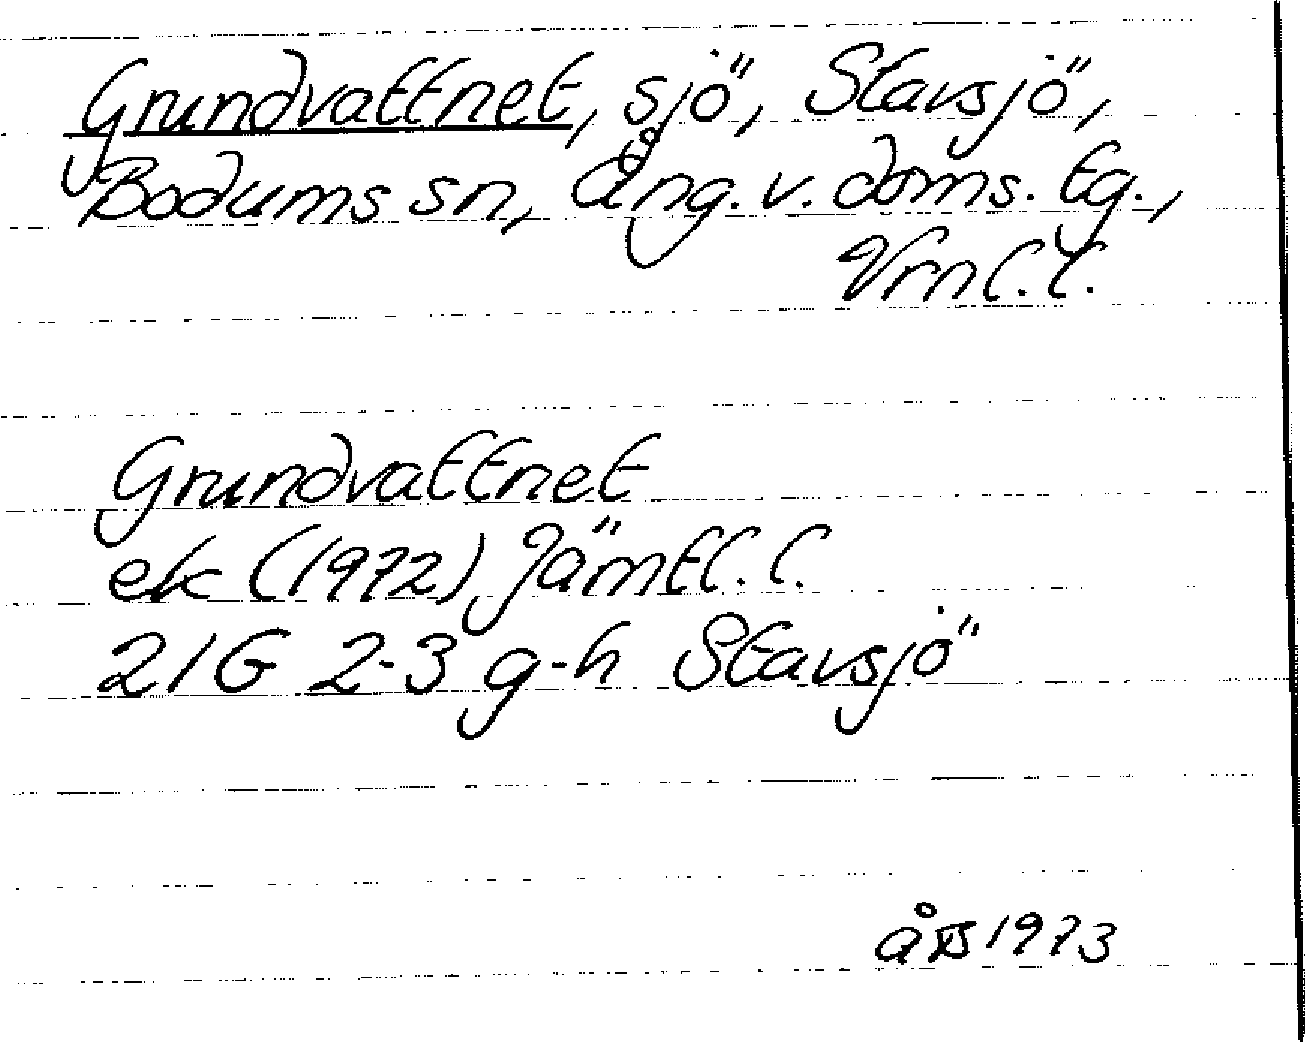 Grundvattnet, sjö, Stavsjö,
Bodums sn, Ång. v. doms. tg.,
Vrnl. l.
Grundvattnet
ek (1972) Jämtl. l.
21G 2-3 g-h Stavsjö
1973